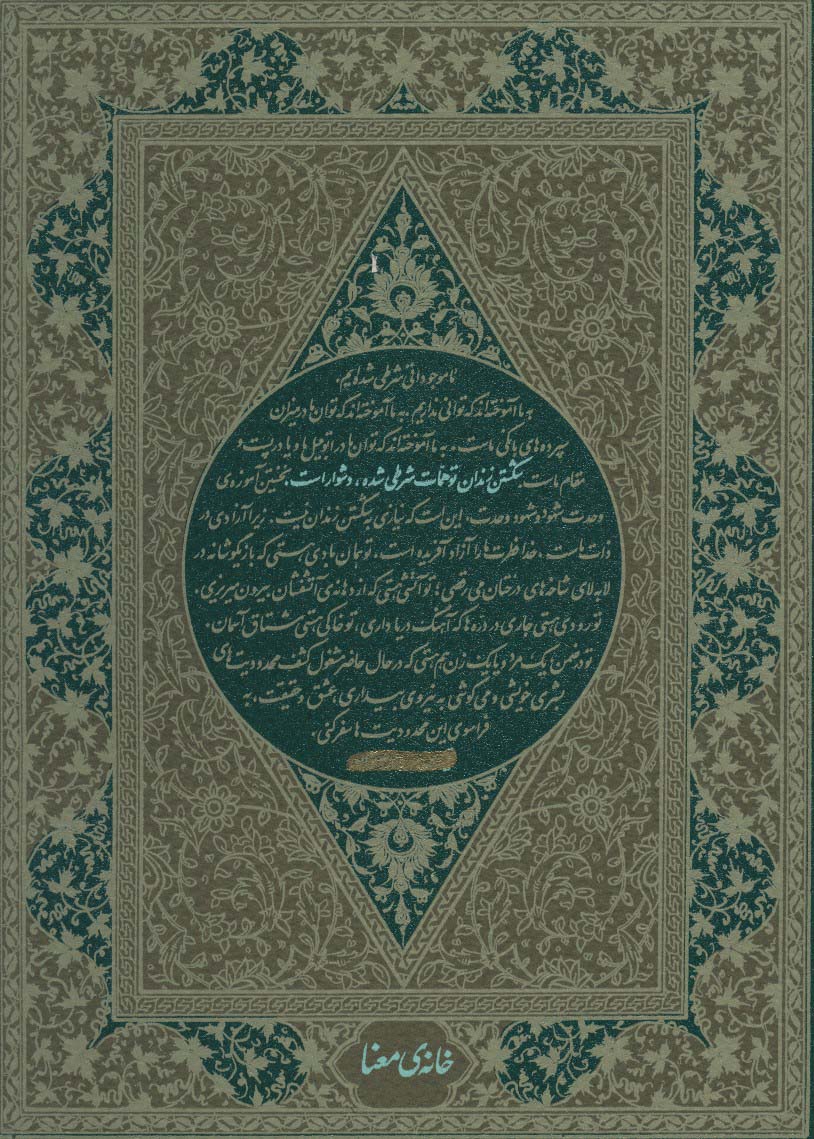 ما موجوداتی شرطی شده‌ایم.
به ما آموخته‌اند که توانی نداریم. به ما آموخته‌اند که توان ما در میزان
سپرده‌های بانکی ماست. به ما آموخته‌اند که توان ما در اتومبیل ما و یا در پست و
مقام ماست. شکستن زندان توهمات شرطی شده، دشوار است. نخستین آموزه‌ی
وحدت شهود و شهود وحدت، این است که نیازی به شکستن زندان نیست. زیرا آزادی در
ذات ماست. خدا فطرت ما را آزاد آفریده است. تو همان بادی هستی که بازیگوشانه در
لابه لای شاخه‌های درختان می‌رقصی؛ تو آتشی هستی که از دهانه‌ی آتشفشان بیرون میریزی.
تو رودی هستی جاری در دره‌ها که آهنگ دریا داری، تو خاکی هستی مشتاق آسمان.
تو در ضمن یک مرد و یا یک زن هم هستی که در حال حاضر مشغول کشف محدودیت‌های
بشری خویشی و می‌کوشی به نیروی بیداری، عشق و حقیقت، به
فراسوی این محدودیت‌ها سفر کنی.
خانه‌ی معنا